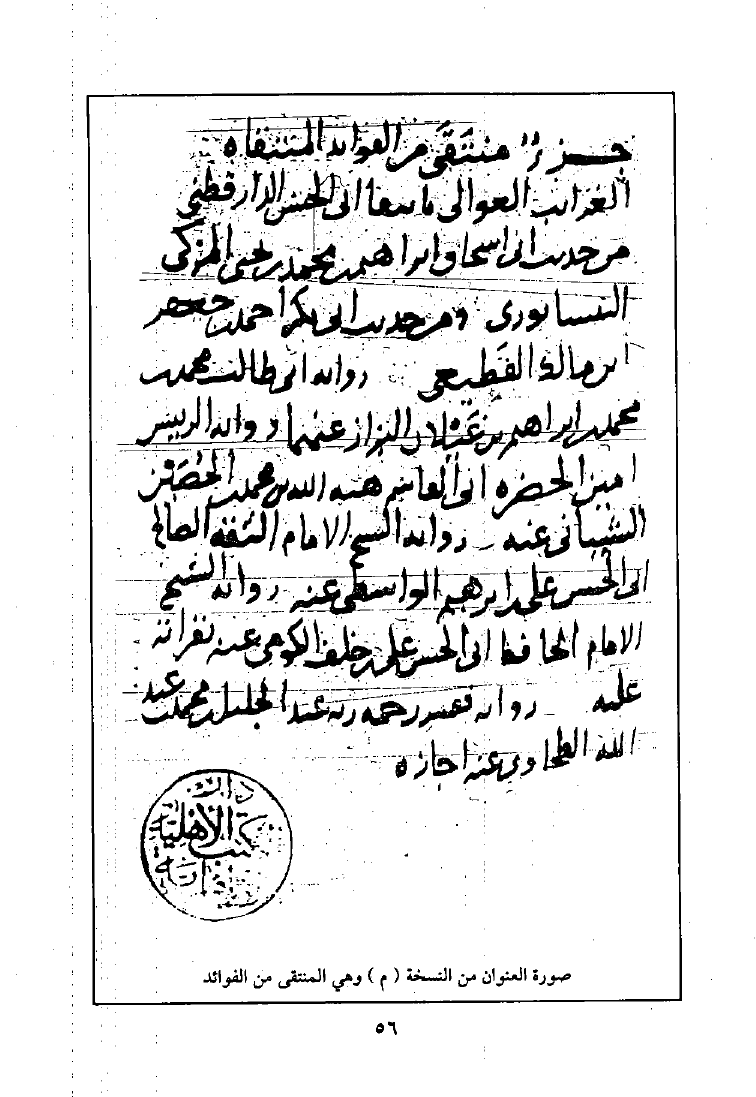 جزء منتقى من الفوائد المنتقاه
الغرائب العوالي بانتقا ابى الحسن الدارقطني
من حديث ابى اسحاق ابراهيم بن محمد بن يحيى المزكى
النيسابورى ومن حديث ابى بكر احمد بن جعفر
ابن مالك القطيعى روايه ابى طالب محمد بن
محمد بن ابراهيم بن غيلان البزاز عنهما روايه الرييس
امين الحضره ابى القاسم هبه الله بن محمد بن الحصين
الشيبانى عنه روايه الشيخ الامام الثقه الصالح
ابى الحسن على بن ابرهيم الواسطى عنه روايه الشيخ
الامام الحافظ ابى الحسن على بن خلف الكومى عنه بقراته
عليه روايه رحمه بن عبد الجليل بن محمد بن عبد
الله الطحاوى عنه اجازه
دار
الكتب الأهلية
صورة العنوان من النسخة ( م ) وهي المنتقى من الفوائد
٥٦